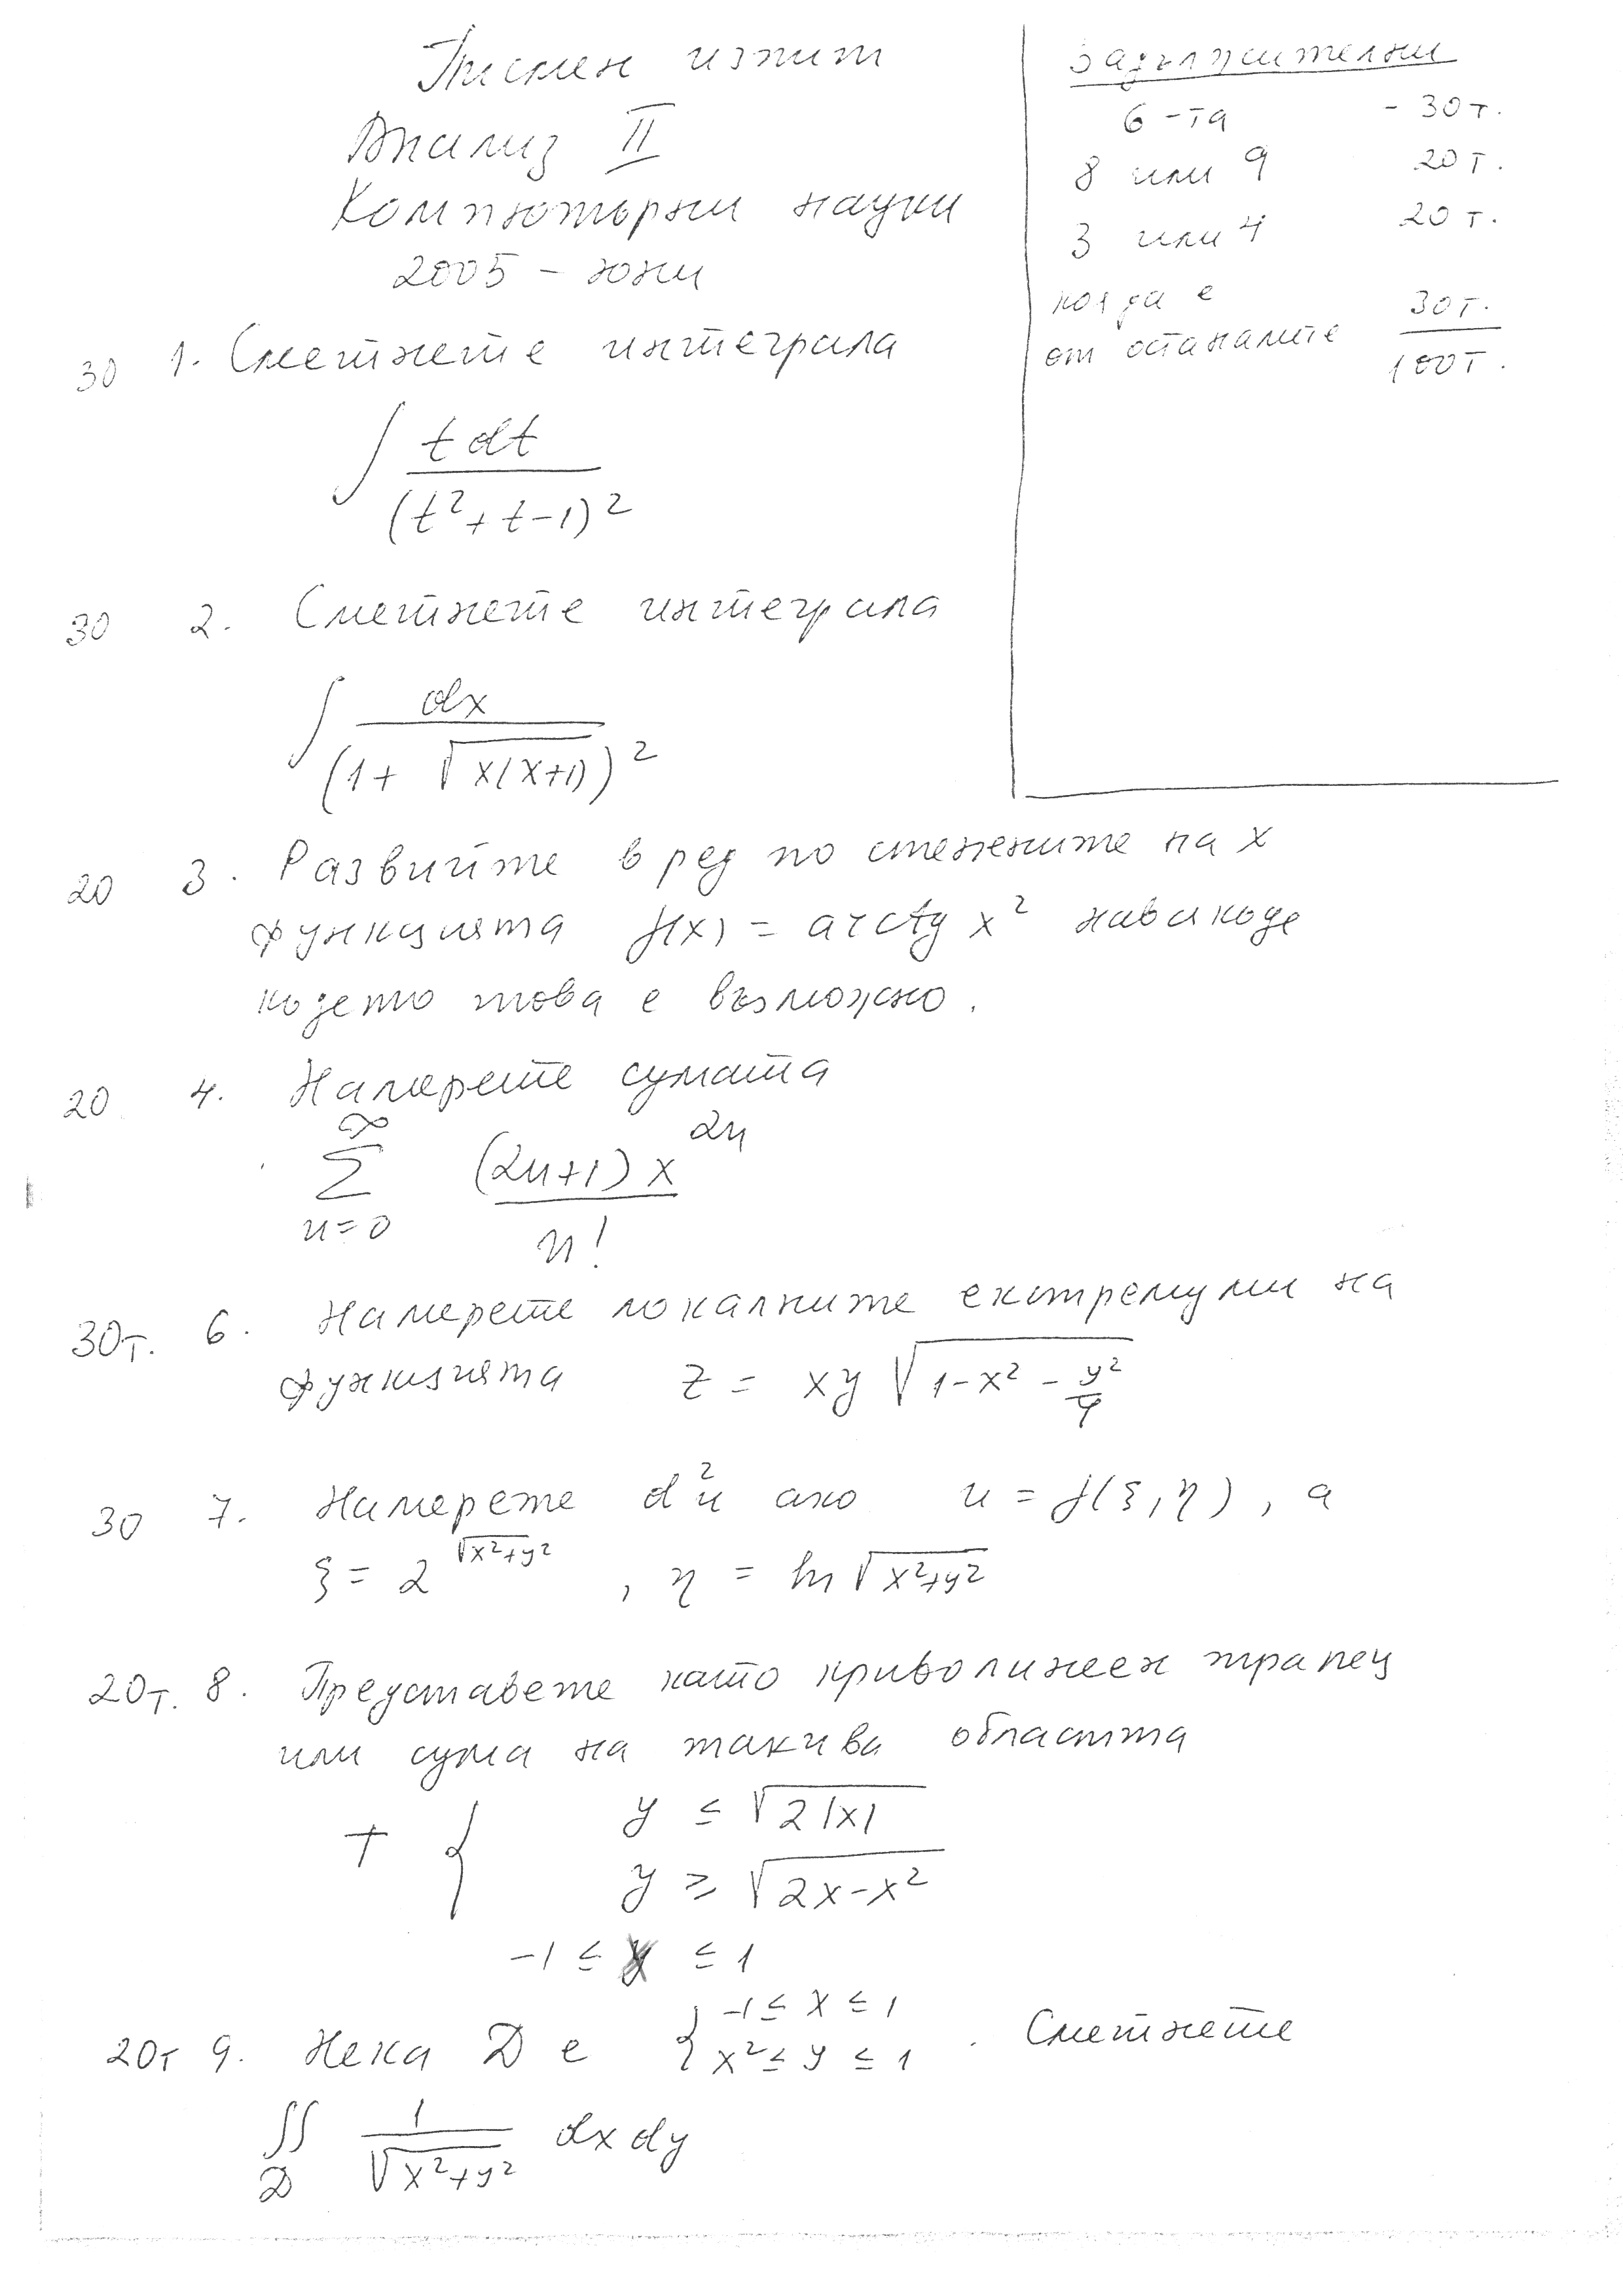 Писмен изпит
Анализ II
Компютърни науки
2005 - юни
Задължителни
6-та - 30т.
8 или 9 20т.
3 или 4 20т.
коя да е
от останалите 30т.
100т.
30 1. Сметнете интеграла
∫ tdt / (t²+t-1)²
30 2. Сметнете интеграла
∫ dx / (1+√x(x+1))²
20 3. Развийте в ред по степените на x
функцията f(x) = arctg x² навсякъде
където това е възможно.
20 4. Намерете сумата
∞
Σ (2n+1)x²ⁿ / n!
n=0
30т. 6. Намерете локалните екстремуми на
функцията z = xy √1-x²-y²/4
30 7. Намерете d²u ако u = f(ξ,η), а
ξ = 2^√x²+y² , η = ln√x²+y²
20т. 8. Представете като криволинеен трапец
или сума на такива областта
T { y ≤ √2|x|
y ≥ √2x-x²
-1 ≤ x ≤ 1
20т 9. Нека D е { -1 ≤ x ≤ 1
x² ≤ y ≤ 1 . Сметнете
∬ 1/√x²+y² dxdy
D